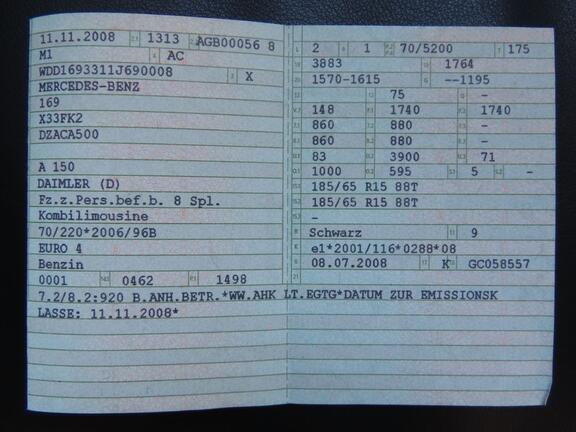 11.11.2008 1313 AGB00056 8
M1 AC
WDD1693311J690008 X
MERCEDES-BENZ
169
X33FK2
DZACA500
A 150
DAIMLER (D)
Fz.z.Pers.bef.b. 8 Spl.
Kombilimousine
70/220*2006/96B
EURO 4
Benzin
0001 0462 1498
7.2/8.2:920 B.ANH.BETR.*WW.AHK LT.EGTG*DATUM ZUR EMISSIONSK
LASSE: 11.11.2008*
2 1 70/5200 175
3883 1764
1570-1615 --1195
75 -
148 1740 1740
860 880 -
860 880 -
83 3900 71
1000 595 5 -
185/65 R15 88T
185/65 R15 88T
-
Schwarz 9
e1*2001/116*0288*08
08.07.2008 K GC058557